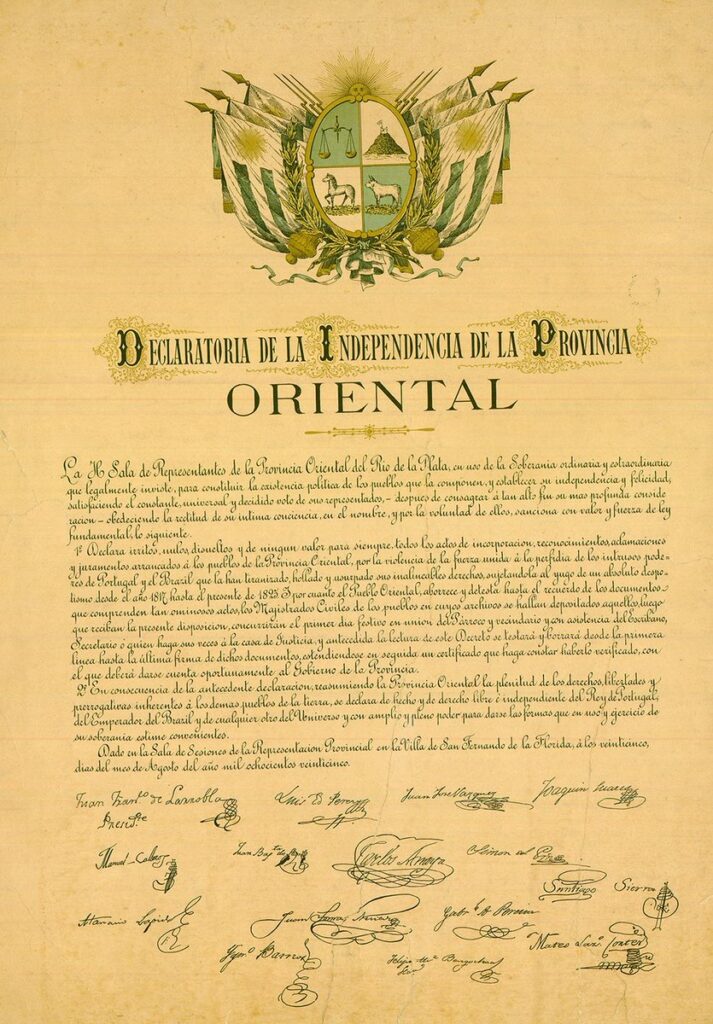 DECLARATORIA DE LA INDEPENDENCIA DE LA PROVINCIA
ORIENTAL
La H. Sala de Representantes de la Provincia Oriental del Rio de la Plata, en uso de la Soberania ordinaria y estraordinaria
que legalmente inviste, para constituir la existencia politica de los pueblos que la componen, y establecer su independencia y felicidad,
satisfaciendo el constante, universal y decidido voto de sus representados,- despues de consagrar á tan alto fin su mas profunda conside
racion - obedeciendo la rectitud de su intima conciencia, en el nombre, y por la voluntad de ellos, sanciona con valor y fuerza de ley
fundamental, lo siguiente.
1º Declara irritos, nulos, disueltos y de ningun valor para siempre, todos los actos de incorporacion, reconocimientos, aclamaciones
y juramentos arrancados á los pueblos de la Provincia Oriental, por la violencia de la fuerza unida à la perfidia de los intrusos pode-
res de Portugal y el Brazil que la han tiranizado, hollado y usurpado sus inalineables derechos, sujetandola al yugo de un absoluto despo-
tismo desde el año 1817, hasta el presente de 1825. Y por cuanto el Pueblo Oriental, aborrece y detesta hasta el recuerdo de los documentos
que comprenden tan ominosos actos, los Magistrados Civiles de los pueblos en cuyos archivos se hallan depositados aquellos, luego
que reciban la presente disposicion, concurrirán el primer dia festivo en union del Párroco y vecindario y con asistencia del Escribano,
Secretario ó quien haga sus veces á la casa de Justicia, y antecedida la lectura de este Decreto se testará y borrará desde la primera
linea hasta la última firma de dichos documentos, estendiendose en seguida un certificado que haga constar haberlo verificado, con
el que deberá darse cuenta oportunamente al Gobierno de la Provincia.
2º En consecuencia de la antecedente declaracion, reasumiendo la Provincia Oriental la plenitud de los derechos, libertades y
prerrogativas inherentes á los demas pueblos de la tierra, se declara de hecho y de derecho libre é independiente del Rey de Portugal,
del Emperador del Brazil y de cualquier otro del Universo y con amplio y pleno poder para darse las formas que en uso y ejercicio de
su soberania estime convenientes.
Dado en la Sala de Sesiones de la Representacion Provincial en la Villa de San Fernando de la Florida, á los veinticinco,
dias del mes de Agosto del año mil ochocientos veinticinco.
Juan Fran.co de Larrobla Luis Ed Perez Juan Jose Vazquez Joaquin Suarez
Presid.te
Manuel Calleros Juan Bap.ta Carlos Anaya Simon del Pino
Santiago Sierra
Atanasio Lapido Juan Tomas Nuñez Gab.l A Pereira
Ygn.o Barrios Mateo Laz.o Cortes
Felipe